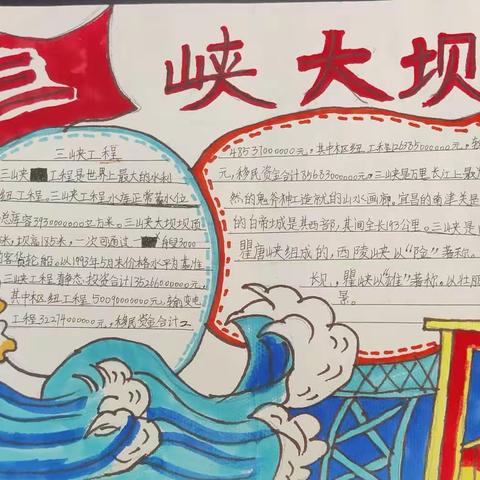 三峡大坝
三峡工程
三峡工程是世界上最大的水利
纽工程,三峡工程水库正常蓄水位
总库容39300000000立方米。三峡大坝坝顶
米,坝高185米,一次可通过一艘3000
的客货轮船。以1993年5月末价格水平为准
三峡工程静态投资合计35266000000元
其中枢纽工程50090000000元,输变电
工程32274000000元,移民资金合计
48531000000元,其中枢纽工程12638500000元,输
元,移民资金合计35683000000元,三峡是万里长江上最
然的鬼斧神工造就的山水画廊,宜昌的南津关是
的白帝城是其西部,其间全长193公里。三峡是
瞿唐峡组成的,西陵峡以“险”著称。
长,瞿峡以“雄”著称。从壮丽
景。